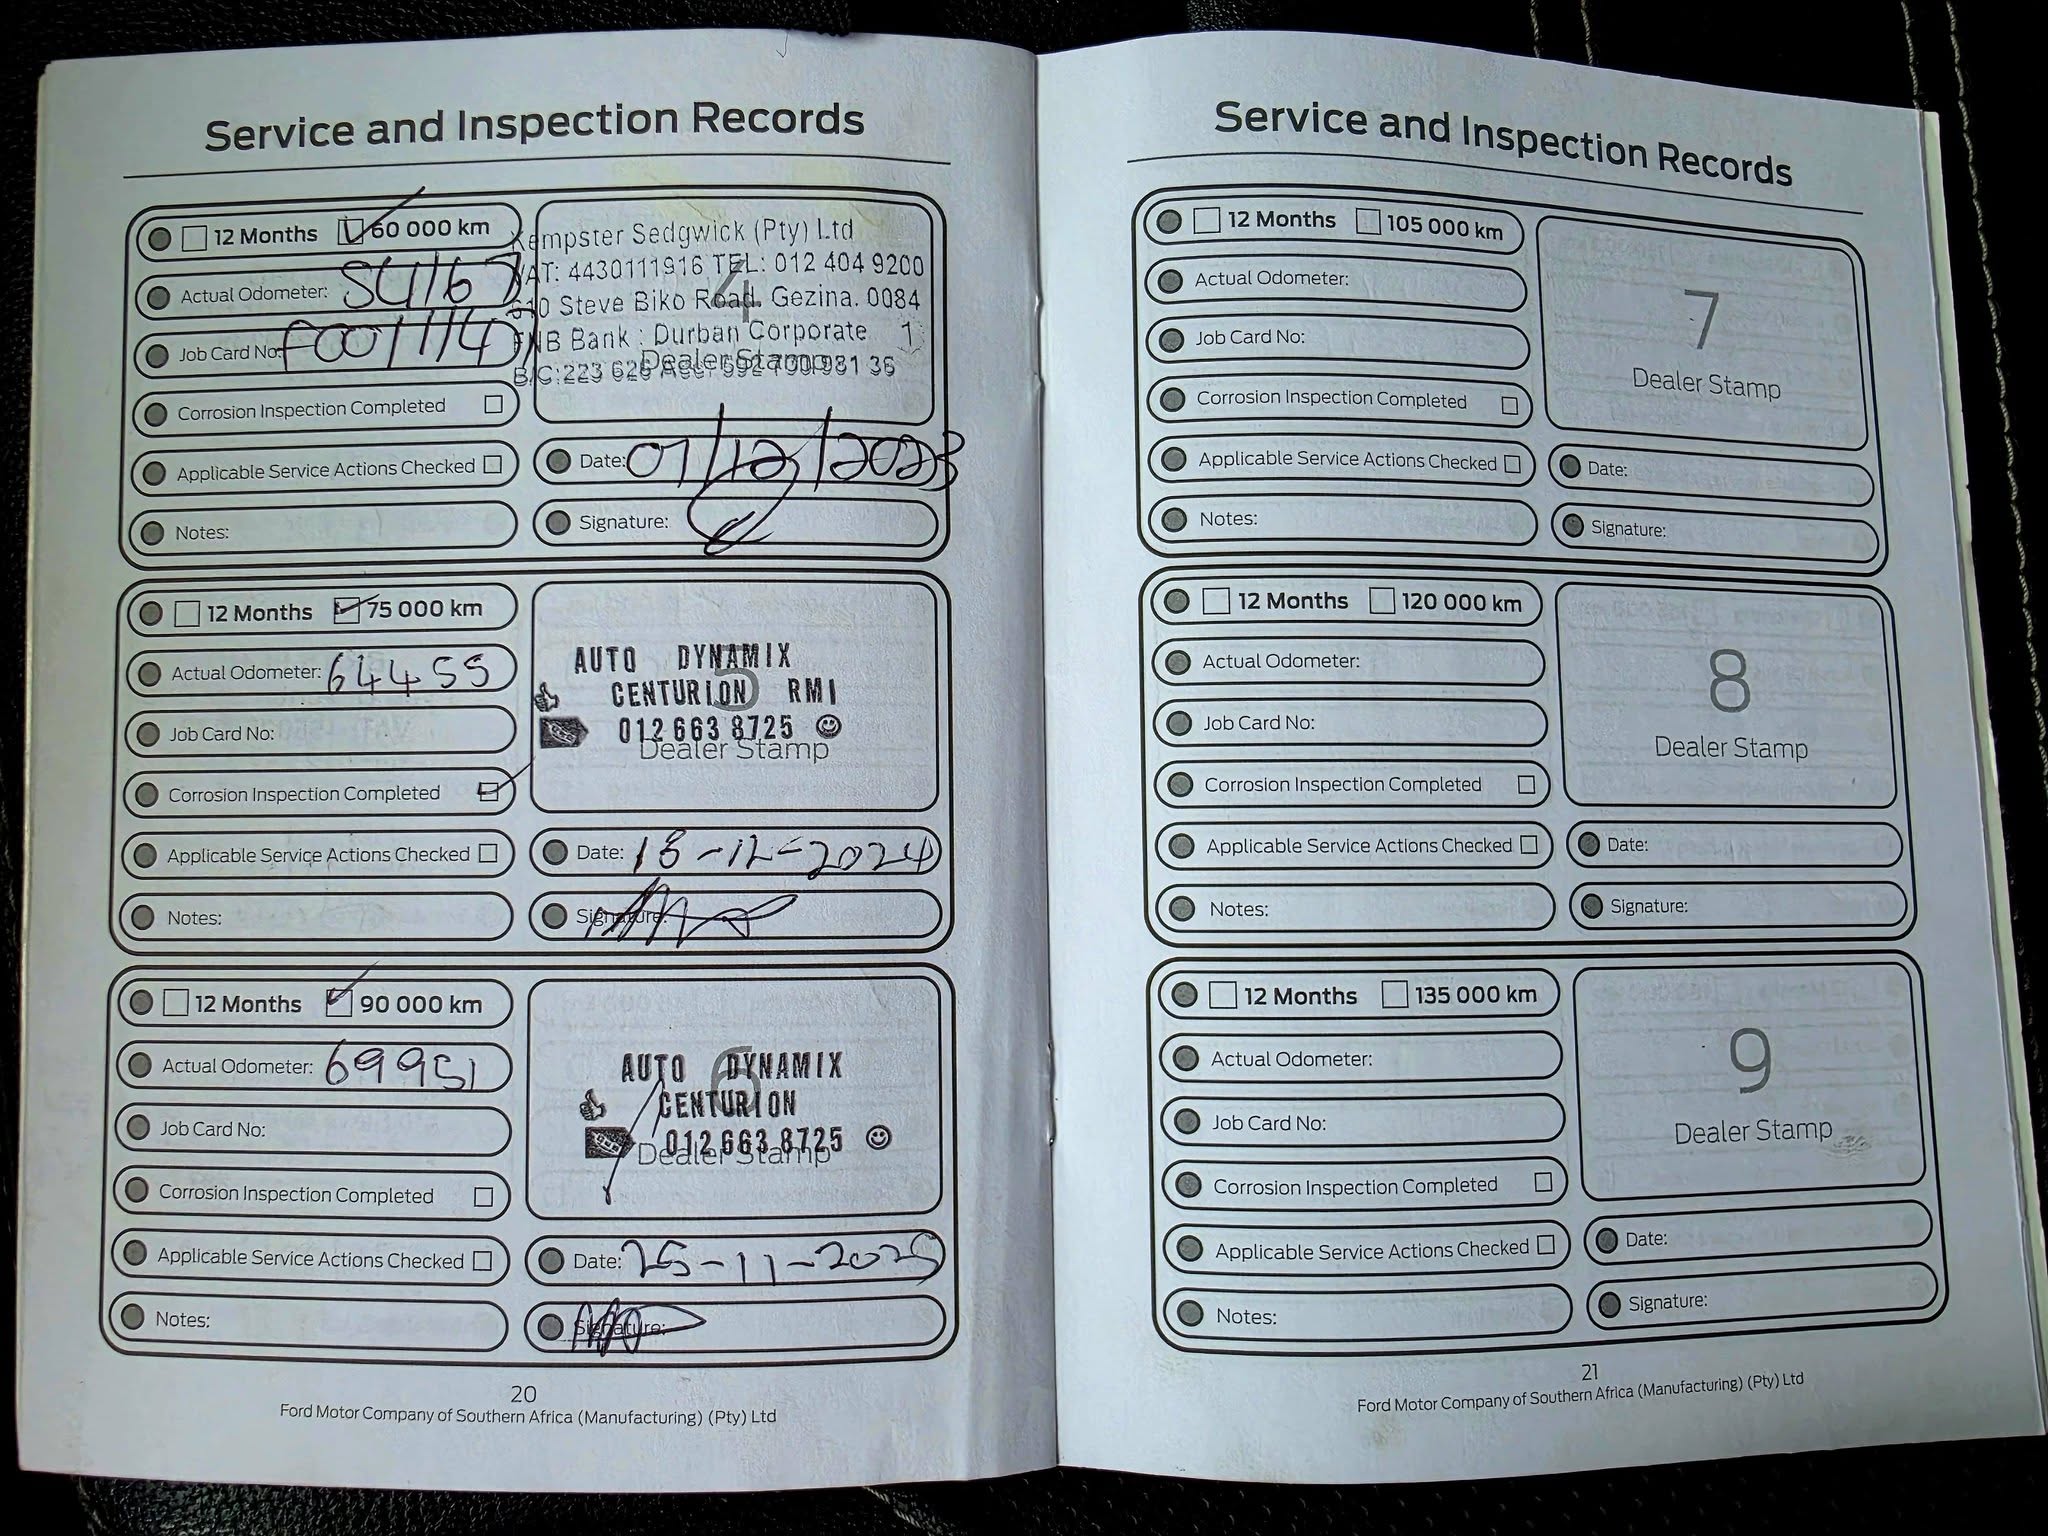 Service and Inspection Records
12 Months 60 000 km
Actual Odometer: 54167
Job Card No:
Corrosion Inspection Completed
Applicable Service Actions Checked
Notes:
Kempster Sedgwick (Pty) Ltd
VAT: 4430111916 TEL: 012 404 9200
610 Steve Biko Road. Gezina. 0084
FNB Bank : Durban Corporate 1
B/C:223 626
4
Dealer Stamp
Date: 07/12/2023
Signature:
12 Months 75 000 km
Actual Odometer: 64455
Job Card No:
Corrosion Inspection Completed
Applicable Service Actions Checked
Notes:
AUTO DYNAMIX
CENTURION RMI
012 663 8725
5
Dealer Stamp
Date: 13-12-2024
Signature:
12 Months 90 000 km
Actual Odometer: 69951
Job Card No:
Corrosion Inspection Completed
Applicable Service Actions Checked
Notes:
AUTO DYNAMIX
CENTURION
012 663 8725
6
Dealer Stamp
Date: 25-11-2025
Signature:
20
Ford Motor Company of Southern Africa (Manufacturing) (Pty) Ltd
Service and Inspection Records
12 Months 105 000 km
Actual Odometer:
Job Card No:
Corrosion Inspection Completed
Applicable Service Actions Checked
Notes:
7
Dealer Stamp
Date:
Signature:
12 Months 120 000 km
Actual Odometer:
Job Card No:
Corrosion Inspection Completed
Applicable Service Actions Checked
Notes:
8
Dealer Stamp
Date:
Signature:
12 Months 135 000 km
Actual Odometer:
Job Card No:
Corrosion Inspection Completed
Applicable Service Actions Checked
Notes:
9
Dealer Stamp
Date:
Signature:
21
Ford Motor Company of Southern Africa (Manufacturing) (Pty) Ltd